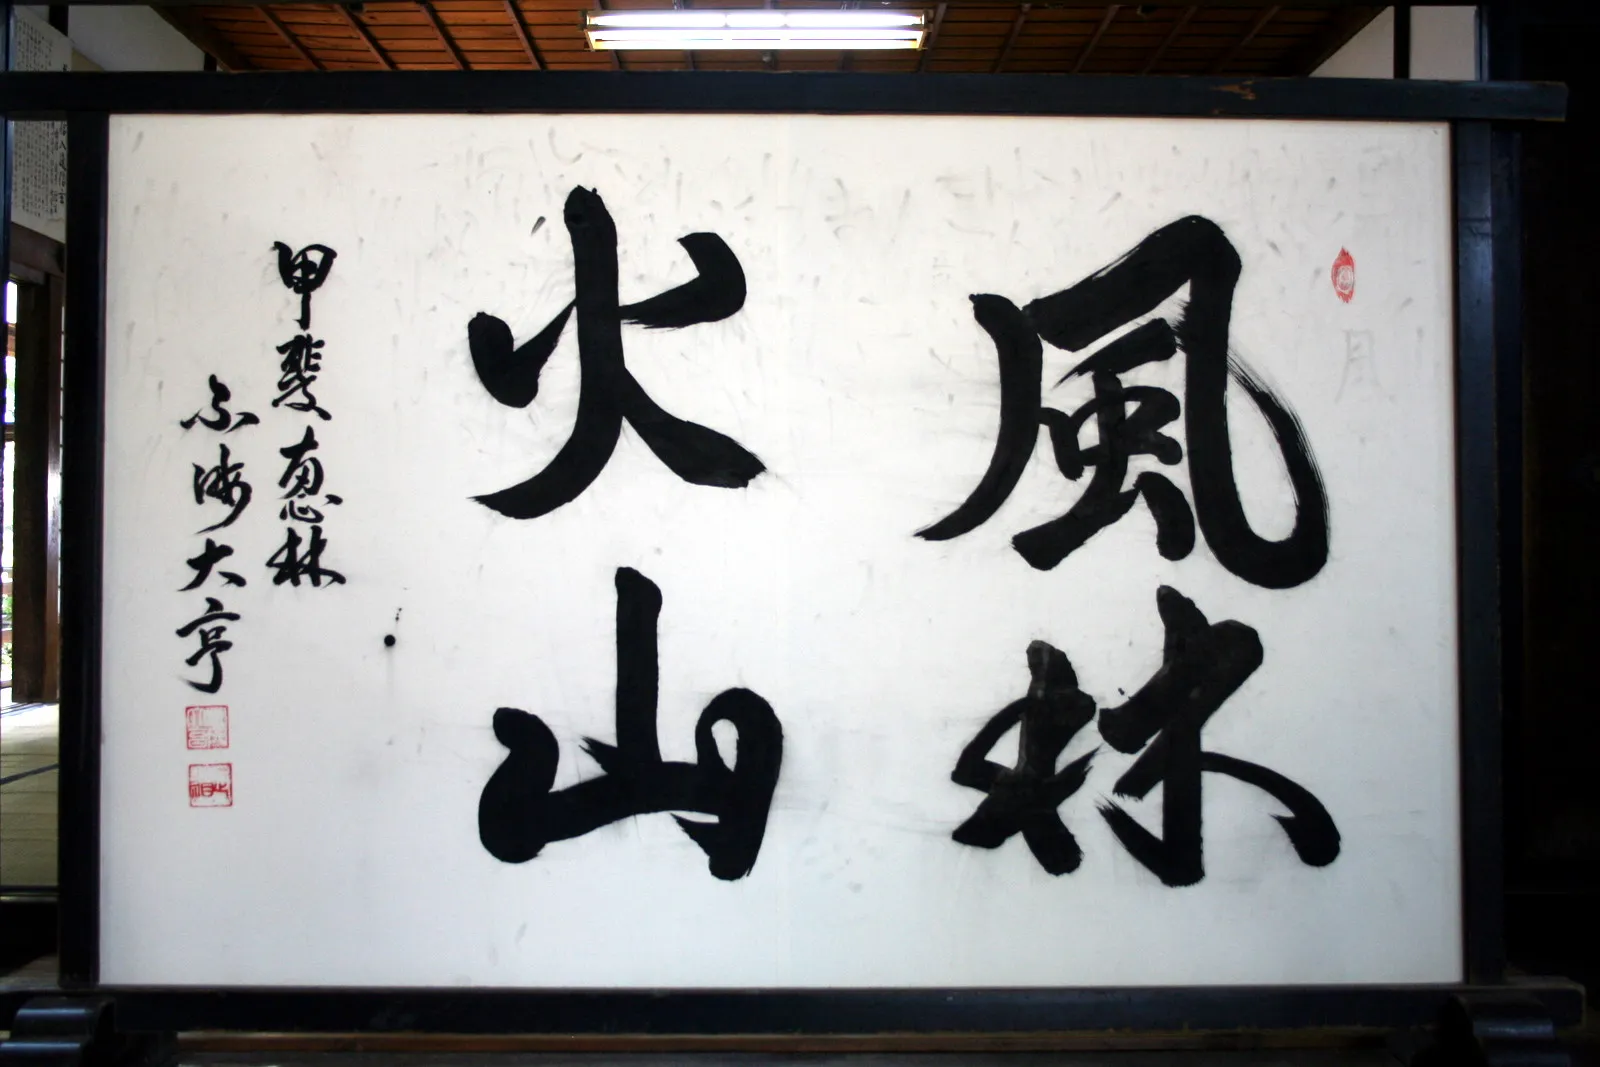 風林
火山
甲斐惠林
不海大亨